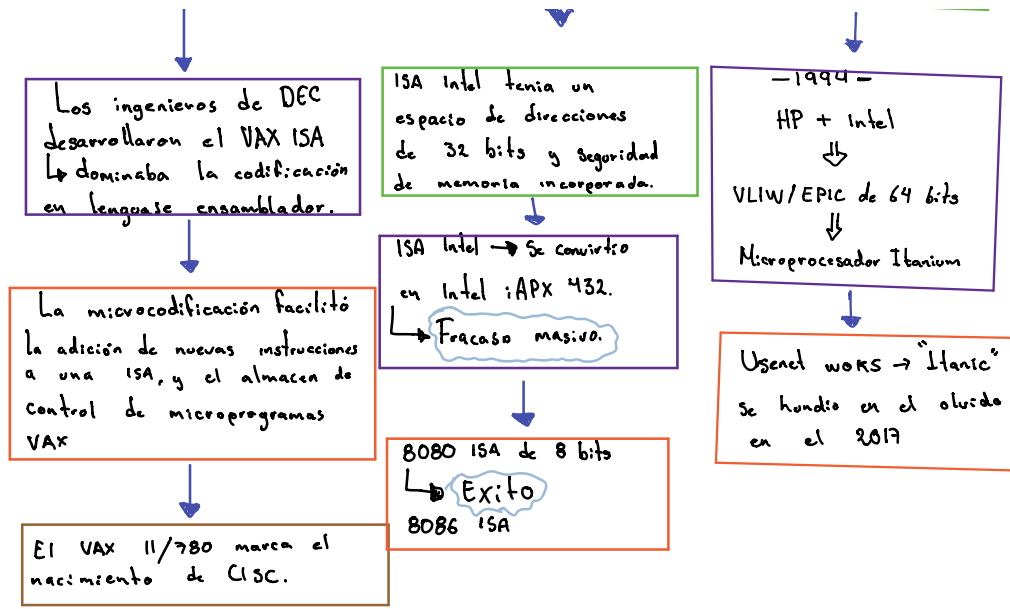 Los ingenieros de DEC
desarrollaron el VAX ISA
↳ dominaba la codificación
en lenguaje ensamblador.
La microcodificación facilitó
la adición de nuevas instrucciones
a una ISA, y el almacen de
control de microprogramas
VAX
El VAX 11/780 marca el
nacimiento de CISC.
ISA Intel tenia un
espacio de direcciones
de 32 bits y seguridad
de memoria incorporada.
ISA Intel → Se convirtio
en Intel iAPX 432.
↳ Fracaso masivo.
8080 ISA de 8 bits
↳ Exito
8086 ISA
-1994-
HP + Intel
⇓
VLIW/EPIC de 64 bits
⇓
Microprocesador Itanium
Usenet woks → "Itanic"
se hundio en el olvido
en el 2017